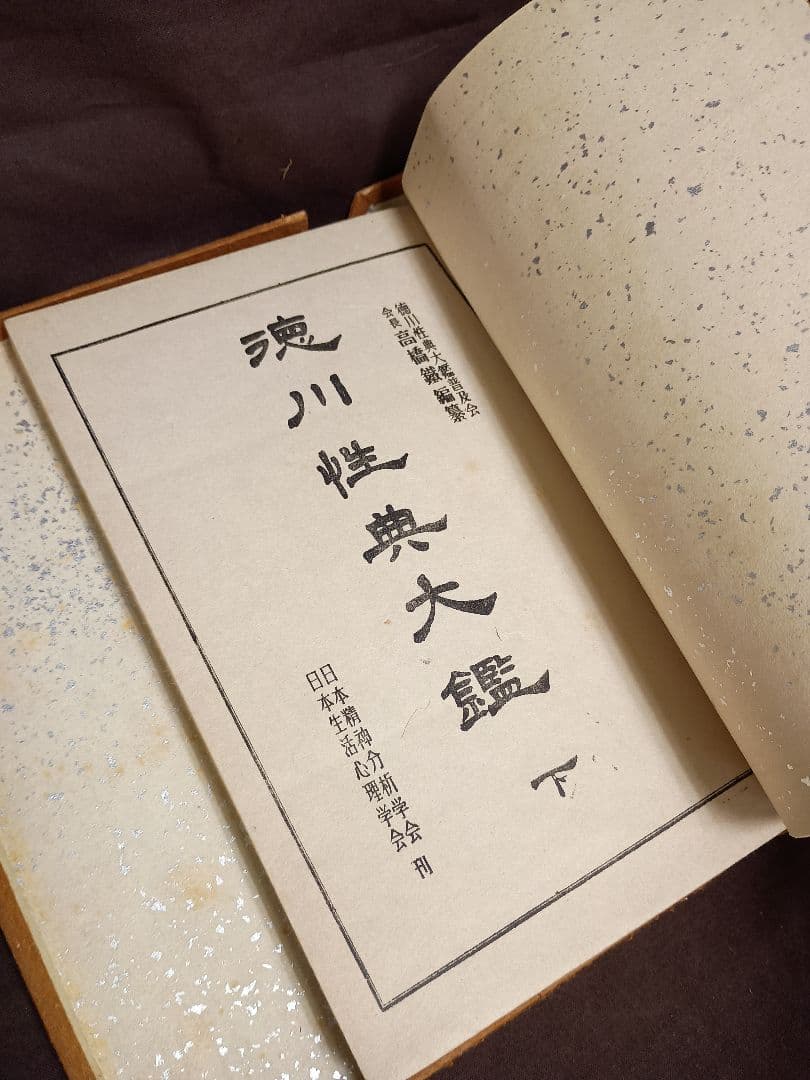 徳川性典大鑑普及会
会長 高橋鐵編纂
徳川性典大鑑 下
日本精神分析学会
日本生活心理学会 刊